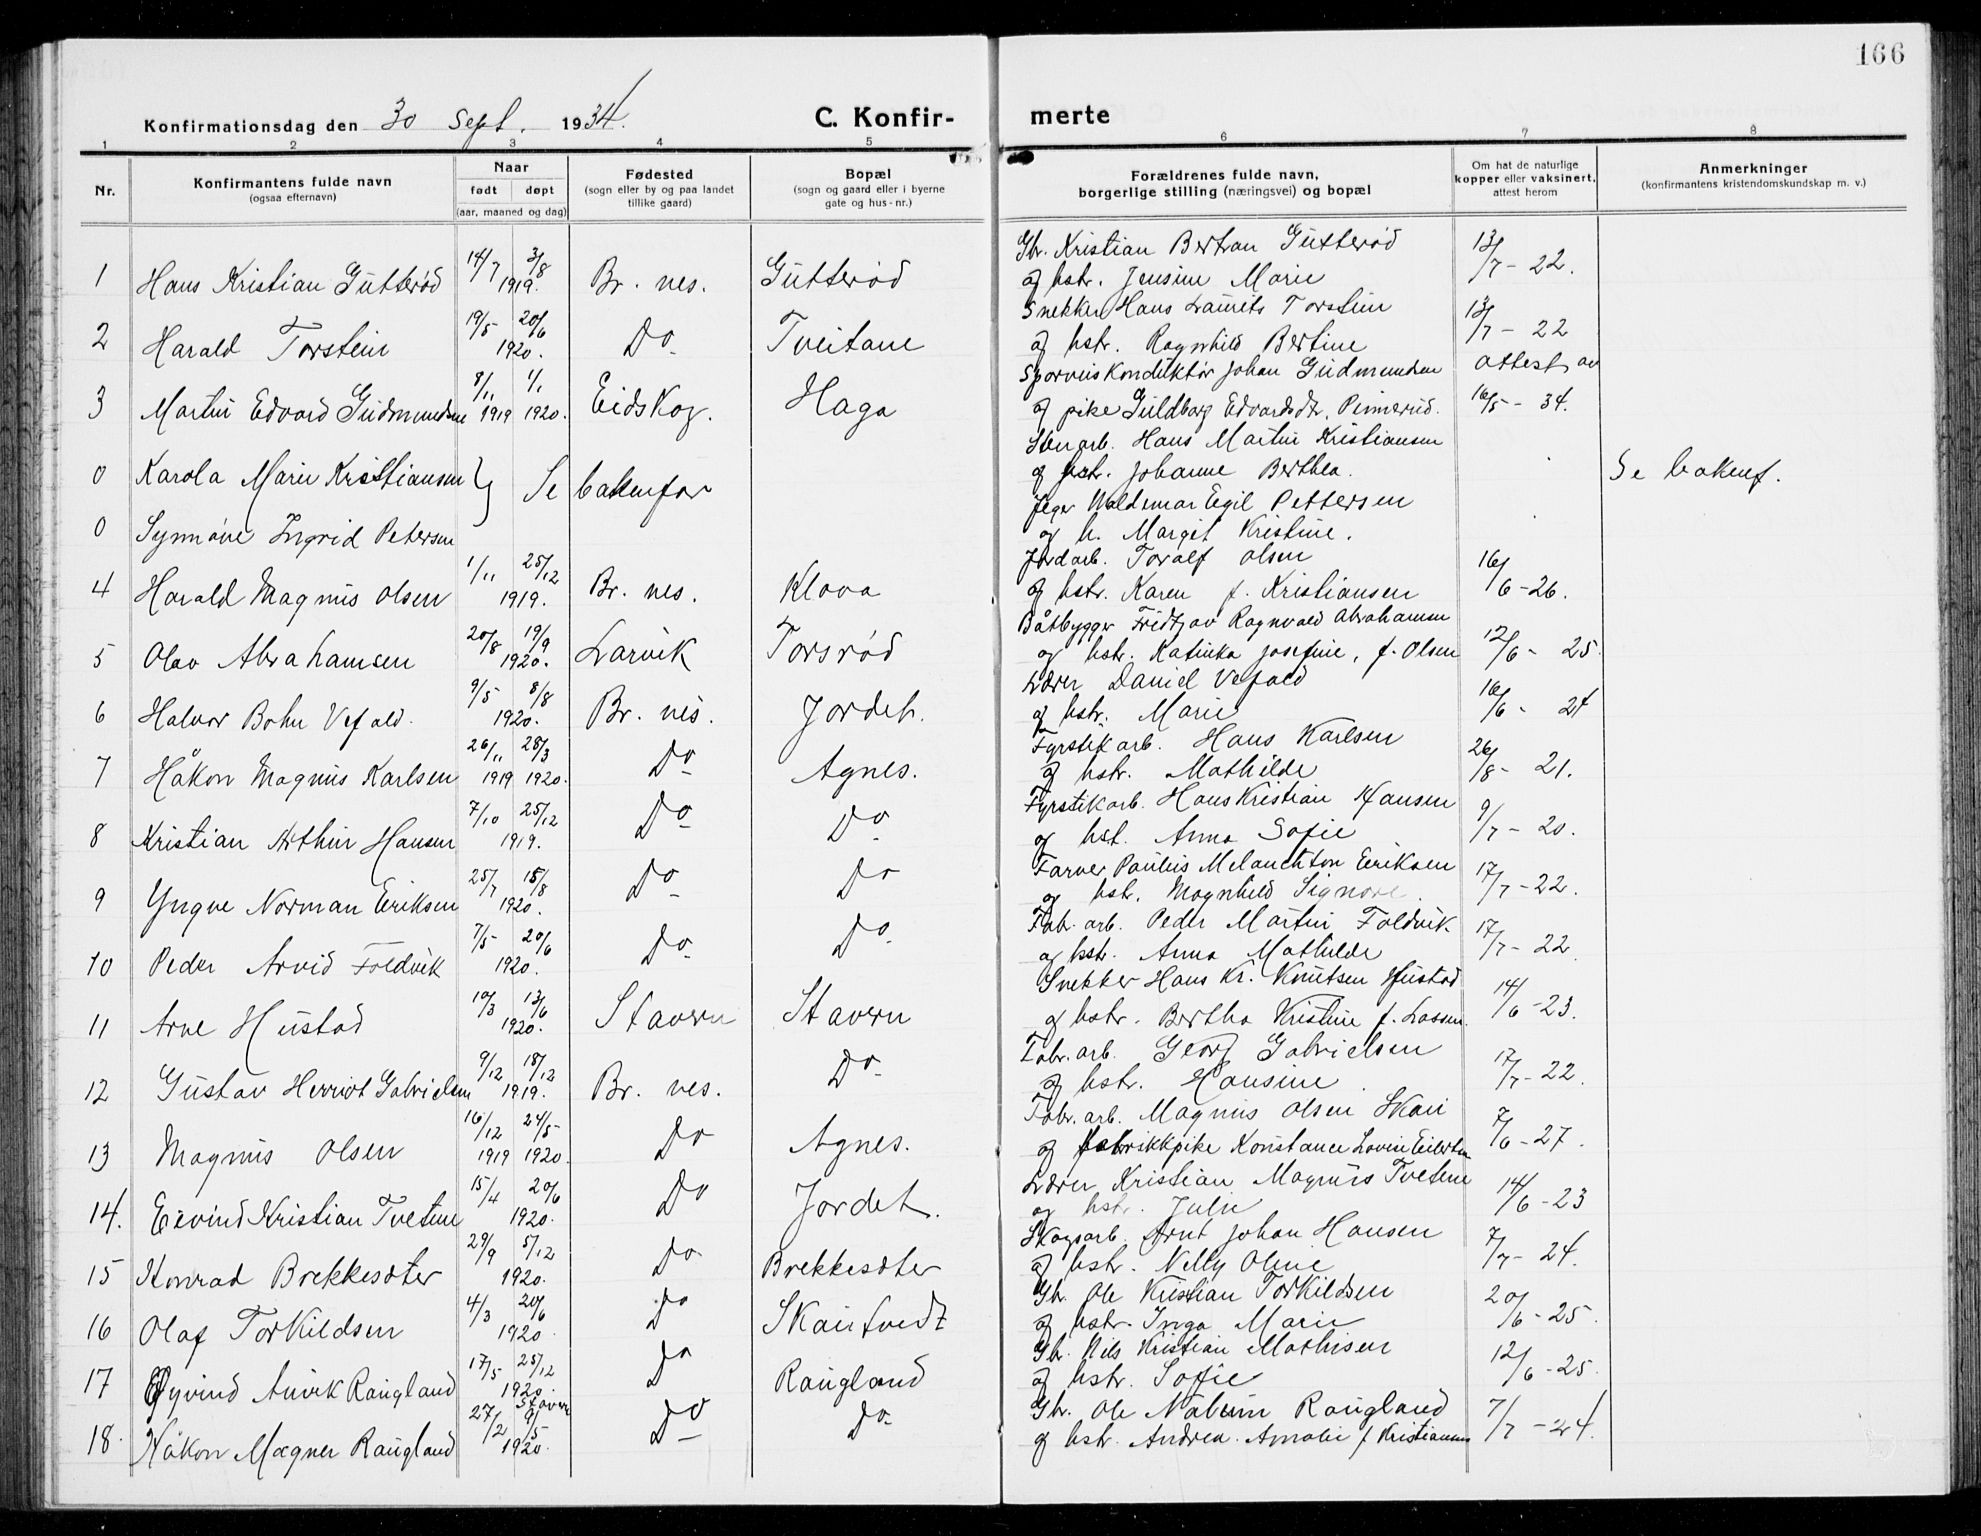 166
Konfirmationsdag den 30 Sept. 1934.
C. Konfir- merte
1 2 3 4 5 6 7 8
Nr.
Konfirmantens fulde navn
(ogsaa efternavn)
Naar
født døpt
(aar, maaned og dag)
Fødested
(sogn eller by og paa landet
tillike gaard)
Bopæl
(sogn og gaard eller i byerne
gate og hus-nr.)
Forældrenes fulde navn,
borgerlige stilling (næringsvei) og bopæl
Om hat de naturlige
kopper eller vaksinert,
attest herom
Anmerkninger
(konfirmantens kristendomskundskap m. v.)
1 Hans Kristian Gutterød 14/7 3/8 1919. Br. nes. Gutterød
Gbr. Kristian Bertran Gutterød
og hstr. Jensine Marie 13/7 - 22.
2 Harald Torstein 19/5 20/6 1920. Do Tveitane
Snekker Hans Laurits Torstein
og hstr. Ragnhild Bertine 13/7 - 22
3 Martin Edvard Gudmundsen 8/11 1919 1/1 1920. Eidskog. Haga
Sporveiskonduktør Johan Gudmundsen
og pike Guldborg Edvardsdtr. Pinnerud. attest av 16/5 - 34.
0 Karola Marie Kristiansen } Se bakenfor
Stenarb. Hans Martin Kristiansen
og hstr. Johanne Berthea. Se bakenf.
0 Synnøve Ingrid Petersen
Jeger Waldemar Egil Pettersen
og h. Margit Kristine.
4 Harald Magnus Olsen 1/11 25/12 1919. Br. nes. Klova
Jordarb. Toralf Olsen
og hstr. Karen f. Kristiansen 16/6 - 26.
5 Olav Abrahamsen 20/8 19/9 1920. Larvik Torsrød
Båtbygger Fridtjov Ragnvald Abrahamsen
og hstr. Katinka Josefine, f. Olsen 12/6 - 25.
6 Halvor Bohn Vefald. 9/5 8/8 1920. Br. nes. Jordet.
Lærer Daniel Vefald
og hstr. Marie 16/6 - 24
7 Håkon Magnus Karlsen 26/11 1919 28/3 1920. Do Agnes.
Fyrstikarb. Hans Karlsen
og hstr. Mathilde 26/8 - 21.
8 Kristian Arthur Hansen 7/10 25/12 1919. Do Do
Fyrstikarb. Hans Kristian Hansen
og hst. Anna Sofie 9/7 - 20.
9 Yngve Norman Eriksen 25/7 15/8 1920. Do Do
Farver Paulus Melanchton Eeriksen
og hstr. Magnhild Signore. 17/7 - 22.
10 Peder Arvid Foldvik 7/5 20/6 1920. Do Do
Fabr. arb. Peder Martin Foldvik
og hstr. Anna Mathilde 17/7 - 22.
11 Arne Hustad 10/3 13/6 1920. Stavern Stavern
Snekker Hans Kr. Knutsen Hustad
og hstr. Bertha Kristine f. Lassen. 14/6 - 23.
12 Gustav Herriot Gabrielsen 9/12 18/12 1919. Br. nes. Do
Fabr. arb. Georg Gabrielsen
og hstr. Hansine. 17/7 - 22.
13 Magnus Olsen 16/12 1919 24/5 1920. Do Agnes.
Fabr. arb. Magnus Olsen Skau
og fabrikkpike Konstance Lovise Eilertsen 7/6 - 27.
14. Eivind Kristian Tvetene 15/4 20/6 1920. Do Jordet.
Lærer Kristian Magnus Tvetene
og hstr. Julie 14/6 - 23
15 Konrad Brekkesæter 29/9 5/12 1920. Do Brekkesæter
Skogsarb. Arnt Johan Hansen
og hstr. Nelly Oline 7/7 - 24.
16 Olaf Torkildsen 4/3 20/6 1920 Do Skaufvedt
Gbr. Ole Kristian Torkildsen
og hstr. Inga Marie 20/6 - 25.
17 Øyvind Anvik Raugland 17/5 25/12 1920. Do Raugland
Gbr. Nils Kristian Mathisen
og hstr. Sofie 12/6 - 25.
18. Håkon Magner Raugland 27/2 Stavern 9/5 1920. Do Do
Gbr. Ole Nahum Raugland
og hstr. Andrea Amalie f. Kristiansen 7/7 - 24.